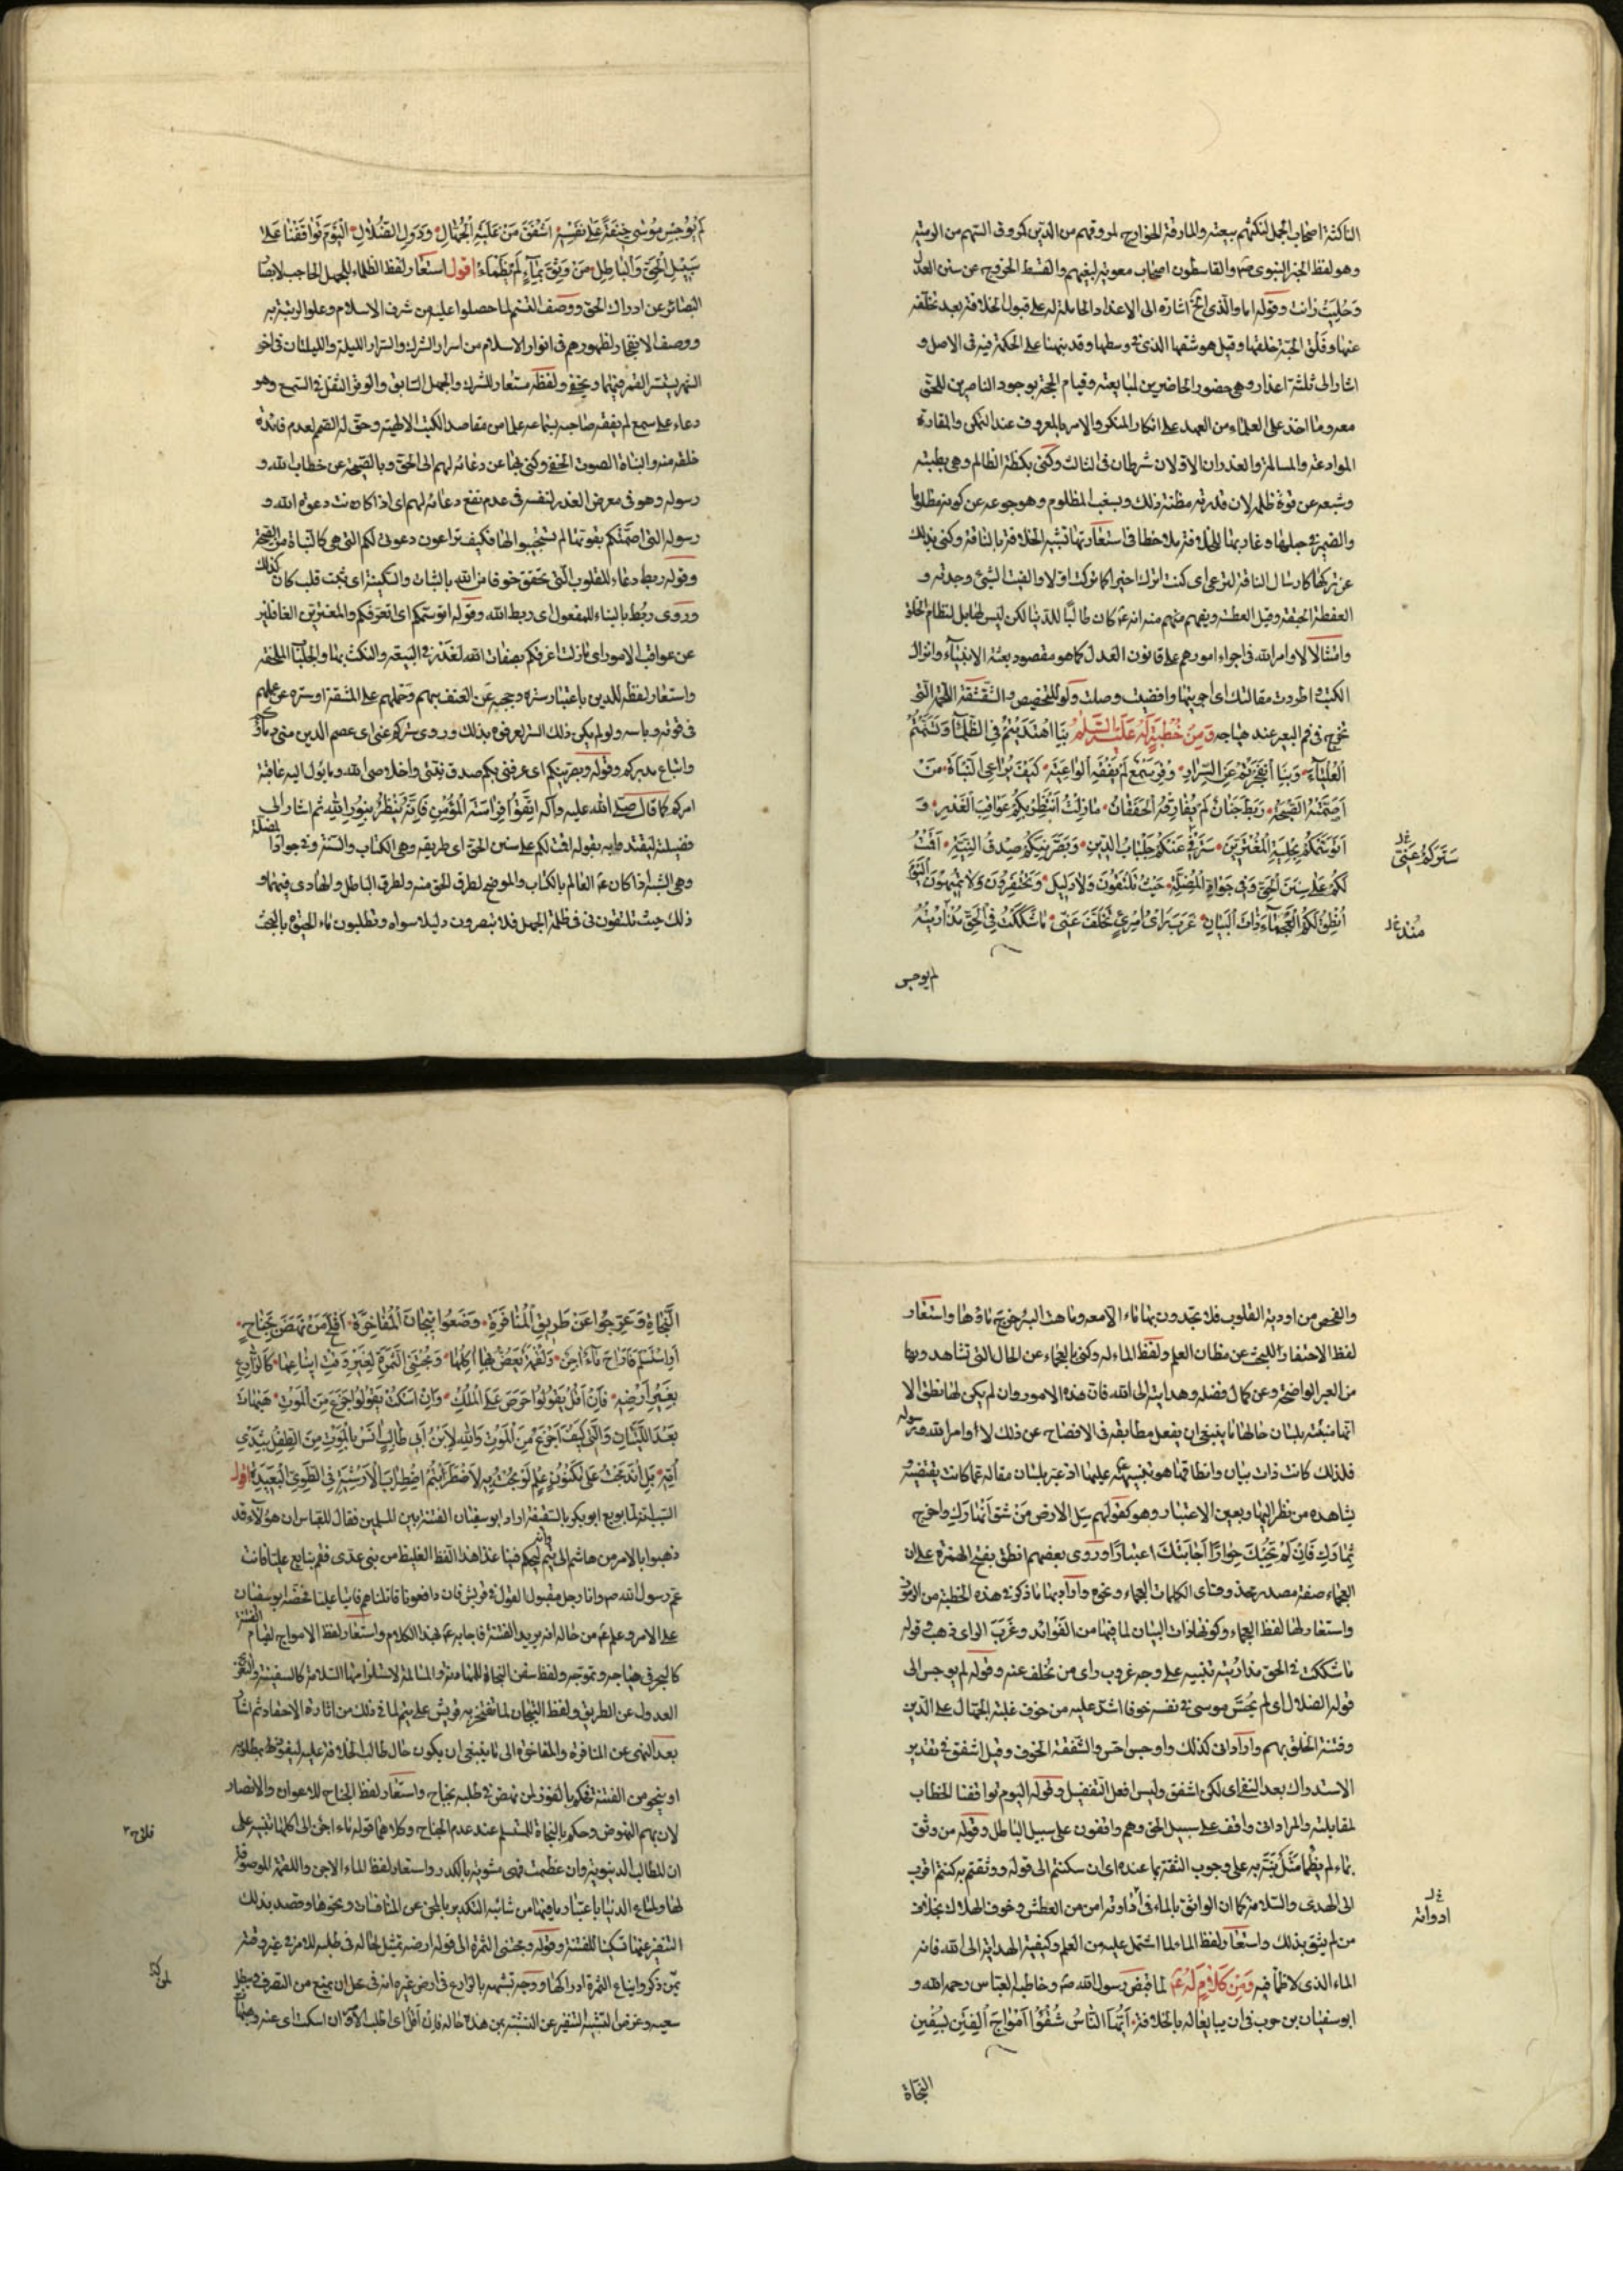 الناكثة اصحاب الجمل لنكثهم بيعته والمارقة الخوارج لمروقهم من الدين كمروق السهم من الرمية
وهو لفظ الخبر النبوى والقاسطون اصحاب معوية لبغيهم والقسط الخروج عن سنن العدل
وحليت زانت وقوله اما والذى الخ اشارة الى الاعذار الحاملة له على قبول الخلافة بعد تخلفه
عنها وفلق الحبة خلقها وقيل هو شقها الذى فى وسطها وقد نبهنا على الحكمة فيه فى الاصل و
اشار الى ثلثة اعذار وهى حضور الحاضرين لمبايعته وقيام الحجة بوجود الناصرين للحق
معه وما اخذ على العلماء من العهد على انكار المنكر والامر بالمعروف عند التمكن والمقارة
الموادعة والمسالمة والعذران الاولان شرطان فى الثالث وكنى بكظة الظالم وهى بطنته
وشبعه عن قوة ظلمه لان قدرته مظنة ذلك وبسغب المظلوم وهو جوعه عن كونه مظلوما
والضمير فى حبلها وغاربها للخلافة ملاحظا فى استعارتها تشبيه الخلافة بالناقة وكنى بذلك
عن تركها كارسال الناقة لترعى اى كنت اترك اخيرا كما تركت اولا والفيت الشئ وجدته و
العفطة الحبقة وقيل العطسة ويفهم منه انه كان طالبا للدنيا لكن ليس لها بل لنظام الخلق
وامتثالا لاوامر الله فى اجراء امورهم على قانون العدل كما هو مقصود بعثة الانبياء وانزال
الكتب واطردت مقالتك اى اجريتها وافضيت وصلت ولو للتحضيض والشقشقة اللحمة التى
تخرج فى فم البعير عند هياجه ومن خطبة له عليه السلم بنا اهتديتم فى الظلماء وتسنمتم
العلياء وبنا انفجرتم عن السرار وقر سمع لم يفقه الواعية كيف يراعى النباة من
اصمته الصيحة ربط جنان لم يفارقه الخفقان ما زلت انتظر بكم عواقب الغدر و
اتوسمكم بحلية المغترين سترنى عنكم جلباب الدين وبصرنيكم صدق النية اقمت
لكم على سنن الحق وفى جواد المضلة حيث تلتقون ولا دليل وتحتفرون ولا تميهون اليوم
انطق لكم العجماء ذات البيان عزب راى امرئ تخلف عنى ما شككت فى الحق مذ اريته
ستركم عنى
منذ
لم يوجس
لم يوجس موسى خيفة على نفسه اشفق من غلبة الجهال ودول الضلال اليوم تواقفنا على
سبيل الحق والباطل من وثق بماء لم يظماء اقول استعار لفظ الظلماء للجهل الحاجب لابصار
البصائر عن ادراك الحق ووصف التسنم لما حصلوا عليه من شرف الاسلام وعلو الرتبة به
ووصف الانفجار لظهورهم فى انوار الاسلام من اسرار الشرك والسرار الليلة والليلتان فى اخر
الشهر يستتر القمر فيهما ويخفى ولفظه مستعار للشرك والجهل السابق والوقر الثقل فى السمع وهو
دعاء على سمع لم يفقه صاحبه بسماعه علما من مقاصد الكتب الالهية وحق له الصمم لعدم فائدة
خلقه منه والنباة الصوت الخفى وكنى بها عن دعائه لهم الى الحق وبالصيحة عن خطاب الله و
رسوله وهو فى معرض العذر لنفسه فى عدم نفع دعائه لهم اى اذا كانت دعوة الله و
رسوله التى اصمتكم بقوتها لم تستجيبوا لها فكيف تراعون دعوتى لكم التى هى كالنباة من الصيحة
وقوله ربط دعاء للقلوب التى تخفق خوفا من الله بالثبات والسكينة اى ثبت قلب كان كذلك
وروى ربط بالبناء للمفعول اى ربط الله وقوله اتوسمكم اى اتعرفكم والمغترين الغافلين
عن عواقب الامور اى ما زلت اعرفكم بصفات الله لغدر فى البيعة والنكث بها والجلباب الملحفة
واستعار لفظه للدين باعتبار ستره وحجبه عن العنف بهم وحملهم على المشقة او ستره عن علمهم
فى قوته وباسه ولو لم يكن ذلك الستر لعرفوه بذلك وروى ستركم عنى اى عصم الدين منى دماؤكم
واتباع مدبركم وقوله وبصرنيكم اى عرفنى بكم صدق نيتى واخلاصى لله وما يؤل اليه عاقبة
امركم كما قال صلى الله عليه وآله اتقوا فراسة المؤمن فانه ينظر بنور الله ثم اشار الى
فضيلته ليقتدوا به بقوله اقمت لكم على سنن الحق اى طريقه وهى الكتاب والسنة وفى جواد المضلة
وهى الشبه اذ كان العالم بالكتاب والموضح لطرق الحق منه ولطرق الباطل والهادى فيهما و
ذلك حيث تلتقون فى ظلمة الجهل فلا تبصرون دليلا سواه وتطلبون ماء الحيوة بالبحث
والفحص من اودية القلوب فلا تجدون بها ماء الا معه وماهت البئر خرج ماؤها واستعار
لفظ الاحتفار للبحث عن مظان العلم ولفظ الماء له وكنى بالعجماء عن الحال التى تشاهدونها
من العبر الواضحة وعن كمال فضله وهدايته الى الله فان هذه الامور وان لم يكن لها نطق الا
انها منبئة بلسان حالها ما ينبغى ان يفعل مطابقه فى الافصاح عن ذلك لاوامر الله ورسوله
فلذلك كانت ذات بيان وانطاقها هو تنبيهه عليها اذ عبر بلسان مقاله عما كانت يقتضيه و
يشاهده من نظر اليها وبعين الاعتبار وهو كقولهم سل الارض من شق انهارك واخرج
ثمارك فان لم تجبك حوارا اجابتك اعتبارا وروى بعضهم انطق بفتح الهمزة على ان
العجماء صفة مصدر محذوف اى الكلمات العجماء ونحوه واراد بها ما ذكر فى هذه الخطبة من الرموز
واستعار لها لفظ العجماء وكونها ذات البيان لما فيها من الفوائد وعزب الراى ذهب وقوله
ما شككت فى الحق مذ اريته تنبيه على وجه عزوب راى من تخلف عنه وقوله لم يوجس الى
قوله الضلال اى لم يحس موسى فى نفسه خوفا اشد عليه من خوف غلبة الجهال على الدين
وفتنة الخلق بهم واراد انى كذلك واوجس احس والشفقة الخوف وقيل اشفق فى تقدير
الاستدراك بعد النفى اى لكن اشفق وليس افعل التفضيل وقوله اليوم تواقفنا الخطاب
لمقابليه والمراد انى واقف على سبيل الحق وهم واقفون على سبيل الباطل وقوله من وثق
بماء لم يظما مثل نبه به على وجوب الثقة بما عنده اى ان سكنتم الى قوله ووثقتم به كنتم اقرب
الى الهدى والسلامة كما ان الواثق بالماء فى اداوته امن من العطش وخوف الهلاك بخلاف
من لم يثق بذلك واستعار لفظ الماء لما اشتمل عليه من العلم وكيفية الهداية الى الله فانه
الماء الذى لا ظما فيه ومن كلام له لما قبض رسول الله وخاطبه العباس رحمه الله و
ابوسفيان بن حرب فى ان يبايعا له بالخلافة ايها الناس شقوا امواج الفتن بسفن
ادواته
النجاة
النجاة وعرجوا عن طريق المنافرة وضعوا تيجان المفاخرة افلح من نهض بجناح
او استسلم فاراح ماء آجن ولقمة يغص بها اكلها ومجتنى الثمرة لغير وقت ايناعها كالزارع
بغير ارضه فان اقل يقولوا حرص على الملك وان اسكت يقولوا جزع من الموت هيهات
بعد اللتيا والتى كيف اجزع من الموت والله لابن ابى طالب انس بالموت من الطفل بثدى
امه بل اندمجت على مكنون علم لو بحت به لاضطربتم اضطراب الارشية فى الطوى البعيدة اقول
السبب انه لما بويع ابو بكر بالسقيفة اراد ابوسفيان الفتنة بين المسلمين فقال للعباس ان هؤلاء قد
ذهبوا بالامر من هاشم الى تيم وانه ليحكم فينا غدا هذا الفظ الغليظ من بنى عدى فقم نبايع عليا فانت
عم رسول الله وانا رجل مقبول القول فى قريش فان دافعونا قاتلناهم فاتيا عليا فحضه ابوسفيان
على الامر وعلم من حاله انه يريد الفتنة فاجابه بهذا الكلام واستعار لفظ الامواج لقيام الفتنة
كالبحر فى هياجه وتموجه ولفظ سفن النجاة للمهادنة والمسالمة لاستلزامها السلامة كالسفينة والتعريج
العدول عن الطريق ولفظ التيجان لما تفتخر به قريش على تيم لما فى ذلك من اثارة الاحقاد ثم اشار
بعد النهى عن المنافرة والمفاخرة الى ما ينبغى ان يكون حال طالب الخلافة عليه ليفوز بمطلوبه
او ينجو من الفتنة فحكم بالفوز لمن نهض فى طلبه بجناح واستعار لفظ الجناح للاعوان والانصار
لان بهم النهوض وحكم بالنجاة للمستسلم عند عدم الجناح وكلاهما قوله ماء اجن الى اكلها تنبيه على
ان المطالب الدنيوية وان عظمت فهى مشوبة بالكدر واستعار لفظ الماء الاجن واللقمة الموصوفة
لها ولمتاع الدنيا باعتبار ما فيها من شائبة التكدير بالمحن عن المنافسات ونحوها وقصد بذلك
التنفير عنها تسكينا للفتنة وقوله ومجتنى الثمرة الى قوله ارضه تمثيل لحاله فى طلبه للامر فى غير وقته
بمن ذكر وايناع الثمرة ادراكها ووجه تشبيهه بالزارع فى ارض غيره انه فى محل ان يمنع من التصرف فيبطل
سعيه وغرض التشبيه التنفير عن التشبه بمن هذه حاله فان اقل اى اطلب الامر وان اسكت اى عنه وهيهات